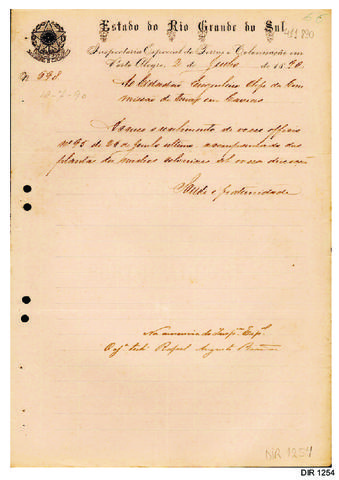 Estado do Rio Grande do Sul
Inspectoria Especial de Terras e Colonisação em
Porto Alegre, 3 de Julho de 1890.
Nº 698
10-7-90
Ao Cidadão Engenheiro Chefe da Com
missão de Terras em Caxias
Accuso o recebimento de vosso officio
nº 95 de 20 de Junho ultimo, acompanhado das
plantas dos nucleos coloniaes sob vossa direcção
Saude e fraternidade
Na ausencia do Insp.or Esp.al
Rafael Augusto
NR 1254
DIR 1254